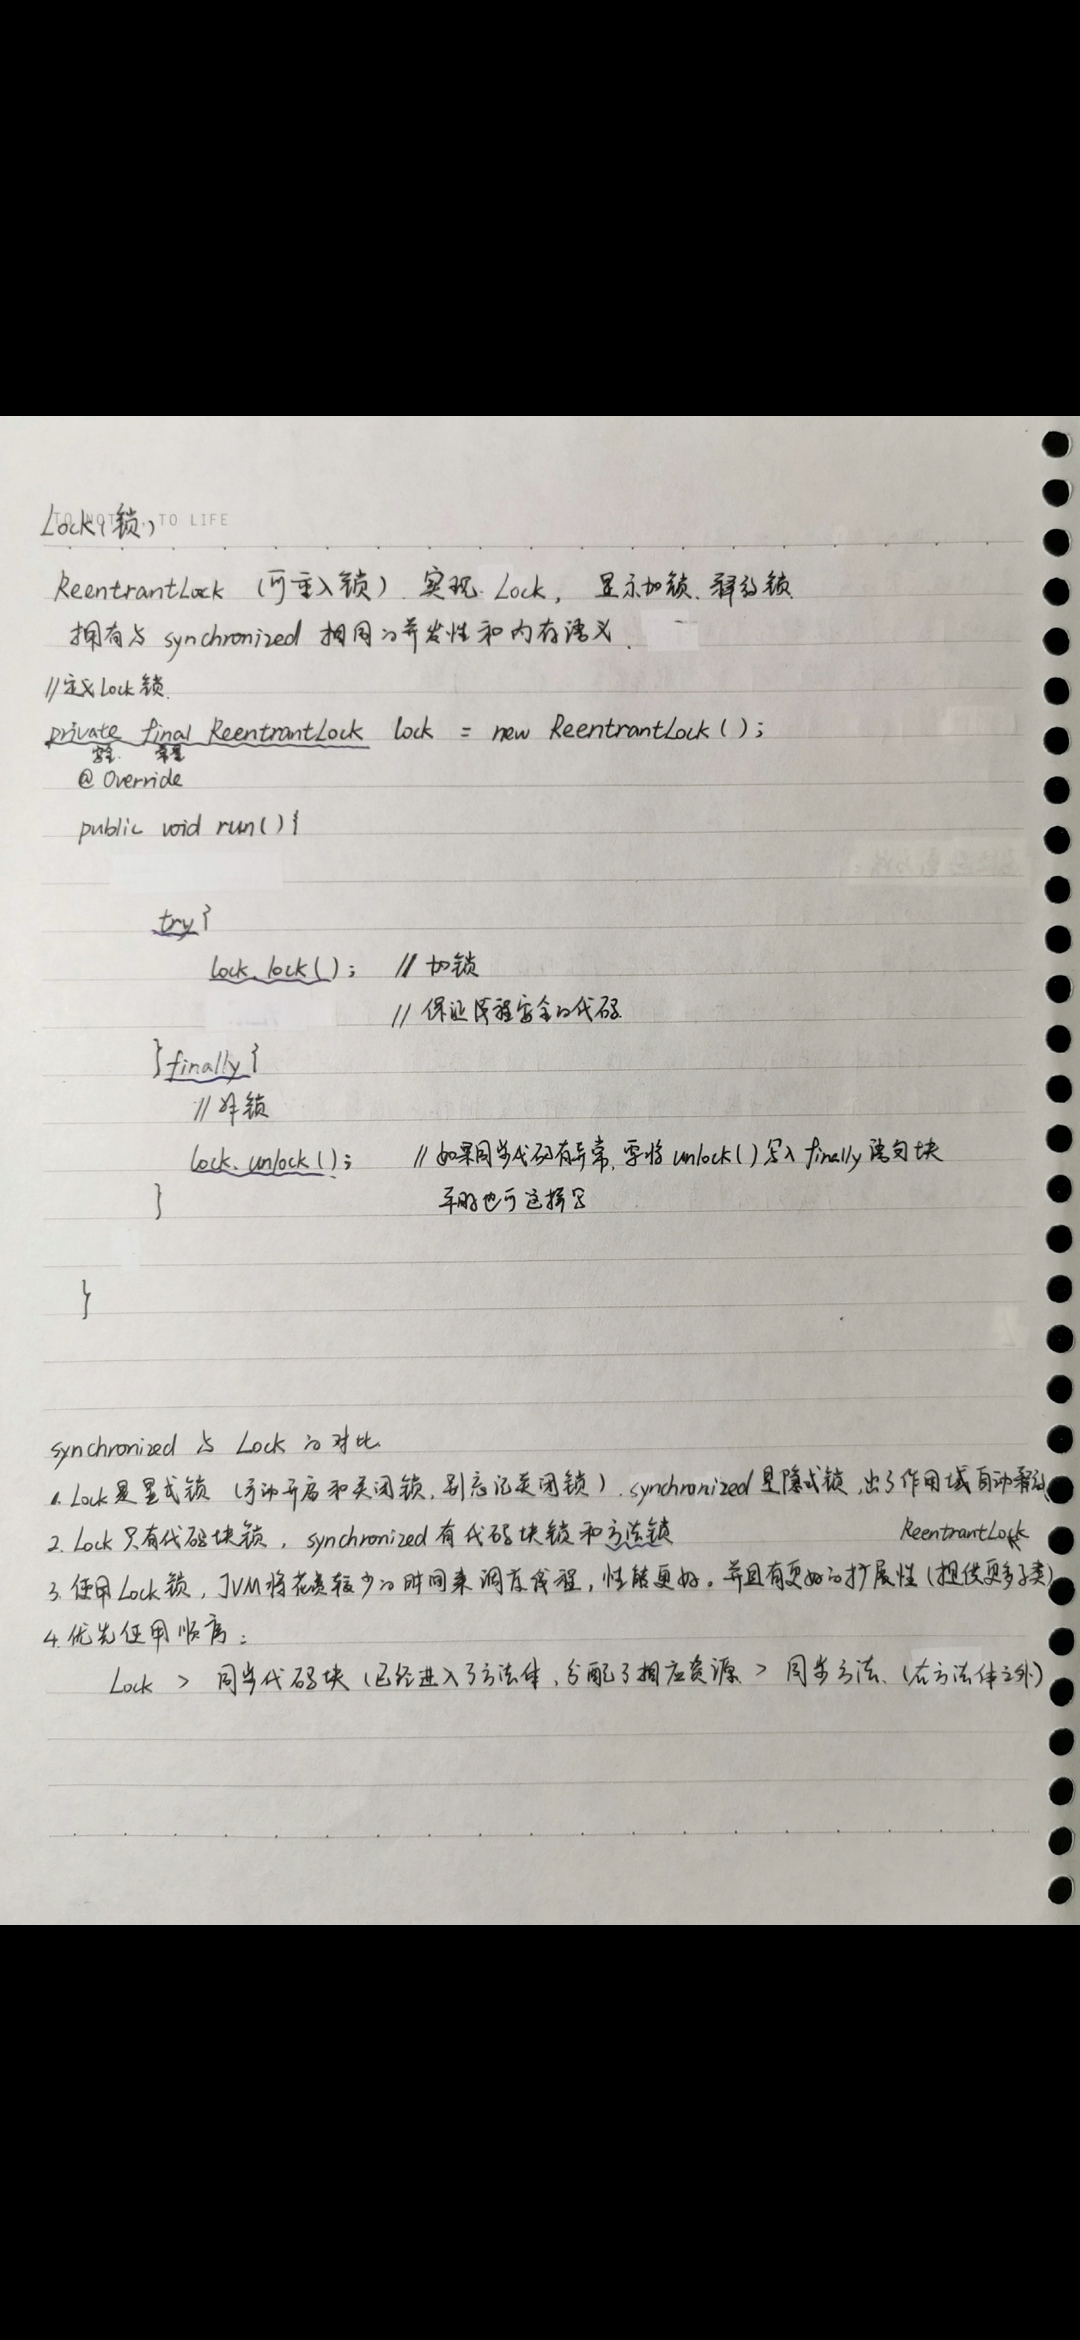 Lock(锁)
TO LIFE
ReentrantLock (可重入锁) 实现 Lock, 显示加锁、释放锁
拥有与 synchronized 相同的并发性和内存语义.
//定义Lock锁
private final ReentrantLock lock = new ReentrantLock();
安全. 常量
@Override
public void run(){
try{
lock.lock(); //加锁
//保证线程安全的代码
}finally{
//解锁
lock.unlock(); //如果同步代码有异常,要将unlock()写入finally语句块
平时也可这样写
}
}
synchronized 与 Lock 的对比
1. Lock是显式锁 (手动开启和关闭锁,别忘记关闭锁). synchronized是隐式锁,出了作用域自动释放
2. Lock只有代码块锁, synchronized有代码块锁和方法锁
ReentrantLock
3. 使用Lock锁, JVM将花费较少的时间来调度线程,性能更好。并且有更好的扩展性(提供更多子类)
4. 优先使用顺序:
Lock > 同步代码块 (已经进入了方法体,分配了相应资源 > 同步方法. (在方法体之外)